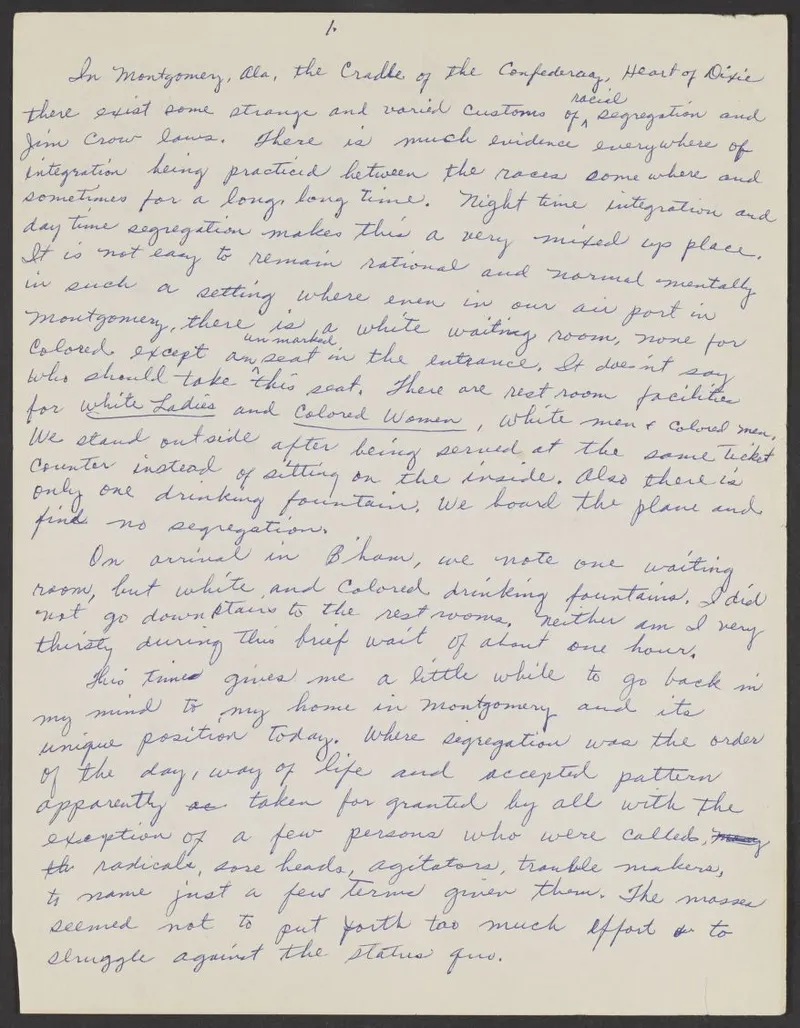 1.
In Montgomery, Ala, the Cradle of the Confederacy, Heart of Dixie
there exist some strange and varied customs of racial segregation and
Jim Crow laws. There is much evidence everywhere of
integration being practiced between the races some where and
sometimes for a long, long time. Night time integration and
day time segregation makes this a very mixed up place.
It is not easy to remain rational and normal mentally
in such a setting where even in our air port in
Montgomery, there is a white waiting room, none for
colored except an unmarked seat in the entrance. It does'nt say
who should take this seat. There are rest room facilities
for white Ladies and Colored Women, white men & colored men.
We stand outside after being served at the same ticket
counter instead of sitting on the inside. Also there is
only one drinking fountain. We board the plane and
find no segregation.
On arrival in B'ham, we note one waiting
room, but white and Colored drinking fountains. I did
not go downstairs to the rest rooms. Neither am I very
thirsty during this brief wait of about one hour.
This time gives me a little while to go back in
my mind to my home in Montgomery and its
unique position today. Where segregation was the order
of the day, way of life and accepted pattern
apparently as taken for granted by all with the
exception of a few persons who were called,
radicals, sore heads, agitators, trouble makers,
to name just a few terms given them. The masses
seemed not to put forth too much effort to
struggle against the status quo.